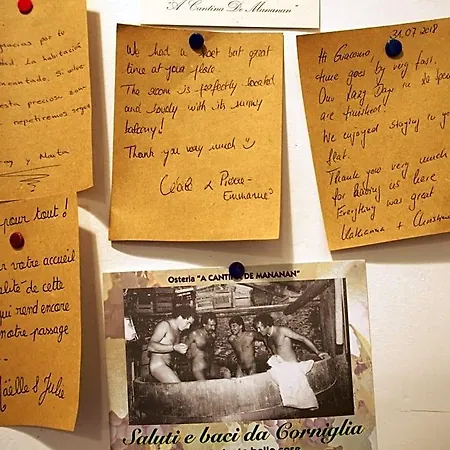 "A Cantina De Mananan"
gracias por tu
La habitación
encantado. Si
esta preciosa zona
repetiremos
y Marta
We had a short but great
time at your place.
The room is perfectly located
and lovely with its sunny
balcony!
Thank you very much
& Pierre-
Emmanuel
31.07.2018
Hi Giacomo,
time goes by very fast.
Our Lazy Day in
are finished.
We enjoyed staying in your
flat.
Thank you very much
for having us here
Everything was great
Katharina + Christian
pour tout !
votre accueil
de cette
qui rend encore
notre passage
...
Maëlle & Julie
Osteria "A CANTINA DE MANANAN"
Saluti e baci da Corniglia